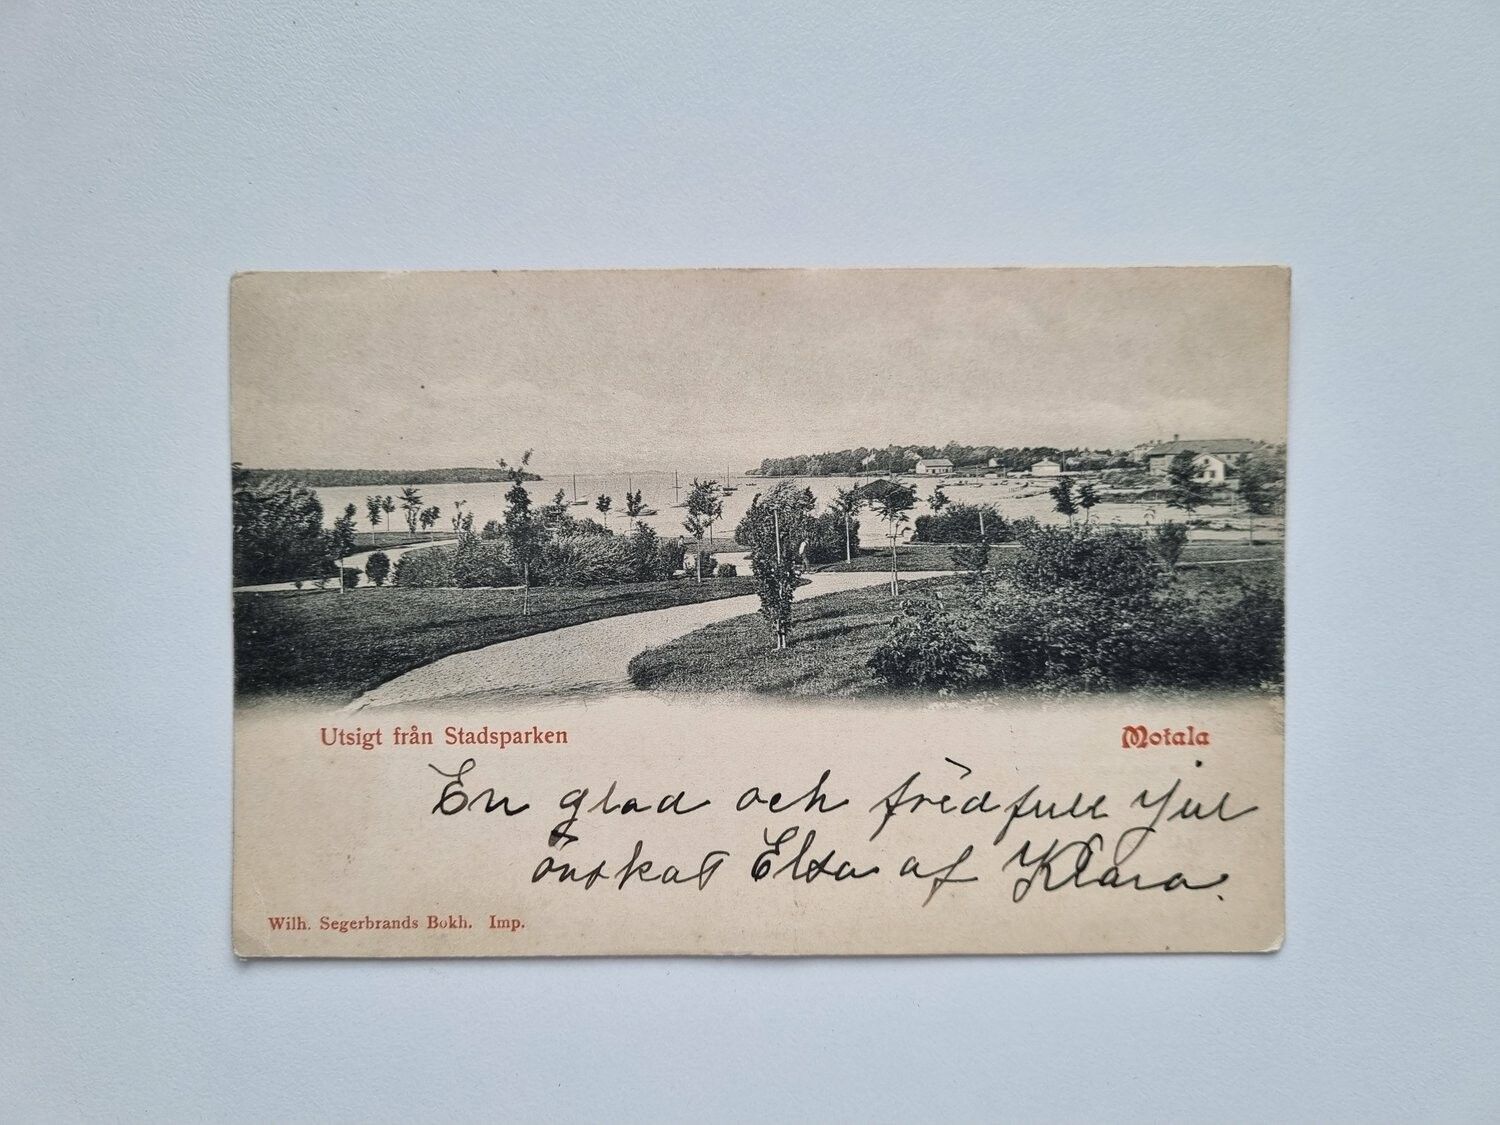 Utsigt från Stadsparken
Motala
En glad och fridfull jul
önskas Elsa af Klara.
Wilh. Segerbrands Bokh. Imp.